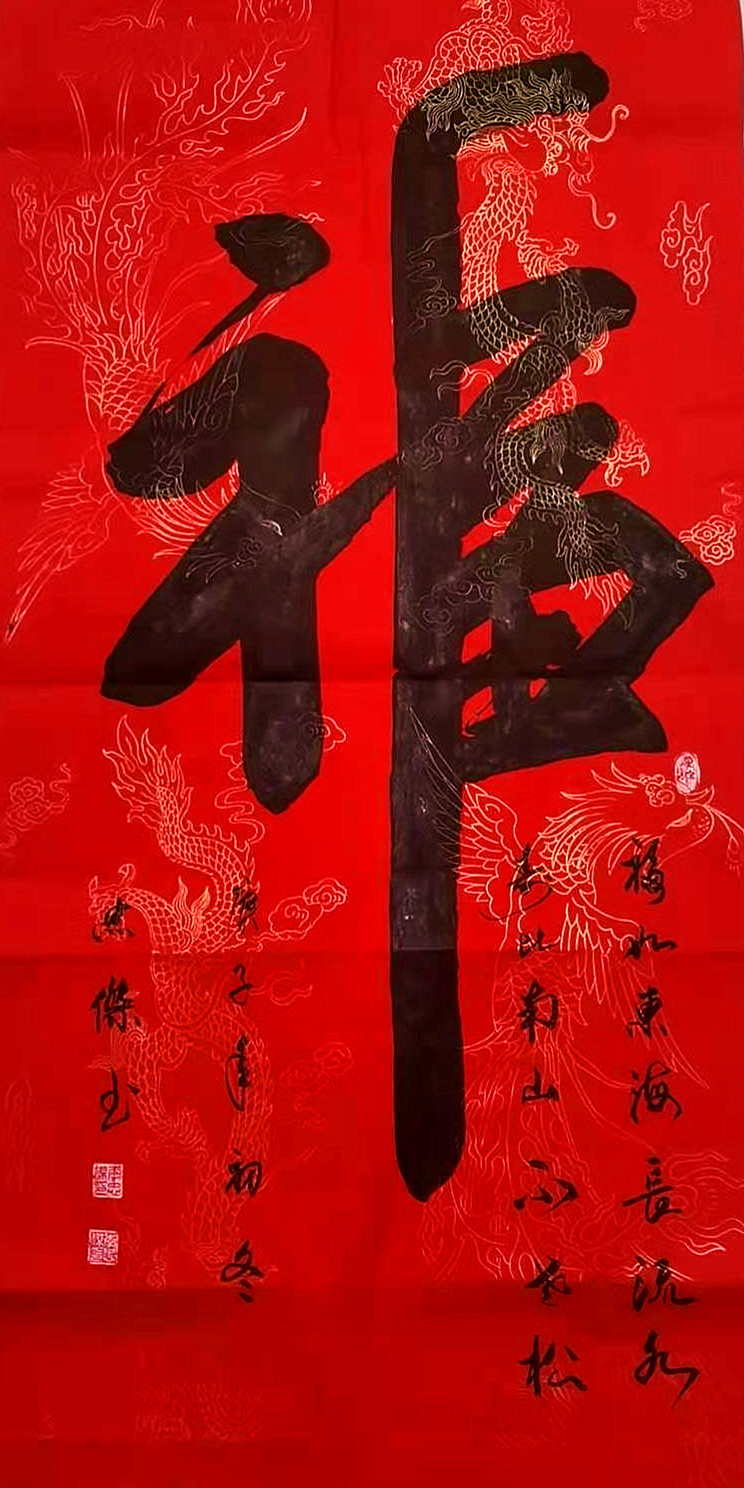 福
福如東海長流水
寿比南山不老松
庚子年初冬
忠傑书